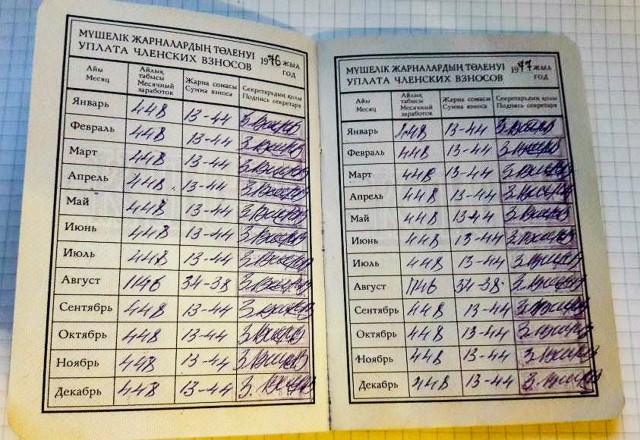 МҮШЕЛІК ЖАРНАЛАРДЫҢ ТӨЛЕНУІ 1976 ЖЫЛ
УПЛАТА ЧЛЕНСКИХ ВЗНОСОВ ГОД
Айы Айлық табысы Жарна сомасы Секретардың қолы
Месяц Месячный заработок Сумма взноса Подпись секретаря
Январь 448 13-44
Февраль 448 13-44
Март 448 13-44
Апрель 448 13-44
Май 448 13-44
Июнь 448 13-44
Июль 448 13-44
Август 1146 34-38
Сентябрь 448 13-44
Октябрь 448 13-44
Ноябрь 448 13-44
Декабрь 448 13-44
МҮШЕЛІК ЖАРНАЛАРДЫҢ ТӨЛЕНУІ 1977 ЖЫЛ
УПЛАТА ЧЛЕНСКИХ ВЗНОСОВ ГОД
Айы Айлық табысы Жарна сомасы Секретардың қолы
Месяц Месячный заработок Сумма взноса Подпись секретаря
Январь 448 13-44
Февраль 448 13-44
Март 448 13-44
Апрель 448 13-44
Май 448 13-44
Июнь 448 13-44
Июль 448 13-44
Август 1146 34-38
Сентябрь 448 13-44
Октябрь 448 13-44
Ноябрь 448 13-44
Декабрь 448 13-44